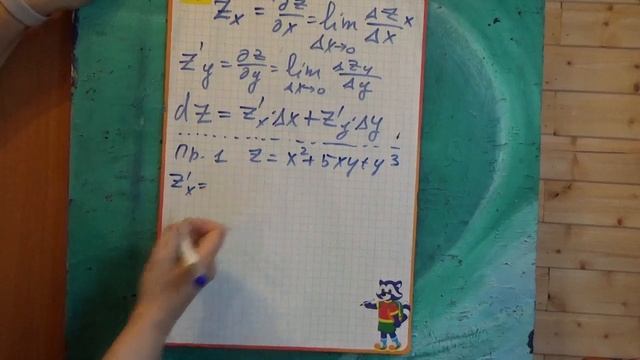 Z'x = ∂z/∂x = lim Δx→0 ΔZx/Δx
Z'y = ∂z/∂y = lim Δx→0 ΔZy/Δy
dz = Z'x·Δx + Z'y·Δy
Пр. 1 z = x² + 5xy + y³
Z'x =